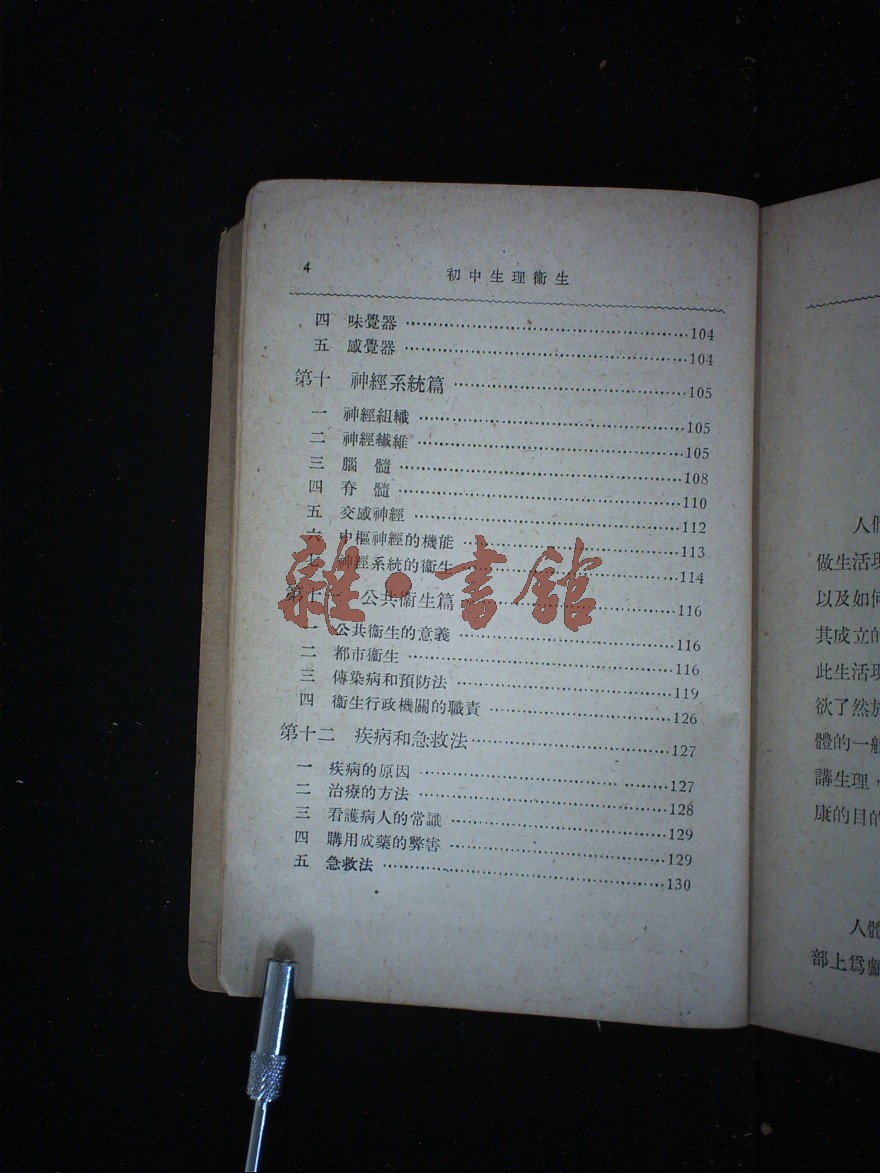 4 初中生理衞生
四 味覺器 ……… 104
五 感覺器 ……… 104
第十 神經系統篇 ……… 105
一 神經組織 ……… 105
二 神經纖維 ……… 105
三 腦髓 ……… 108
四 脊髓 ……… 110
五 交感神經 ……… 112
六 中樞神經的機能 ……… 113
七 神經系統的衞生 ……… 114
第十一 公共衞生篇 ……… 116
一 公共衞生的意義 ……… 116
二 都市衞生 ……… 116
三 傳染病和預防法 ……… 119
四 衞生行政機關的職責 ……… 126
第十二 疾病和急救法 ……… 127
一 疾病的原因 ……… 127
二 治療的方法 ……… 128
三 看護病人的常識 ……… 129
四 購用成藥的弊害 ……… 129
五 急救法 ……… 130
雜·書館
人們
做生活現
以及如何
其成立的
此生活現
欲了然於
體的一般
講生理，
康的目的
人體
部上爲顱